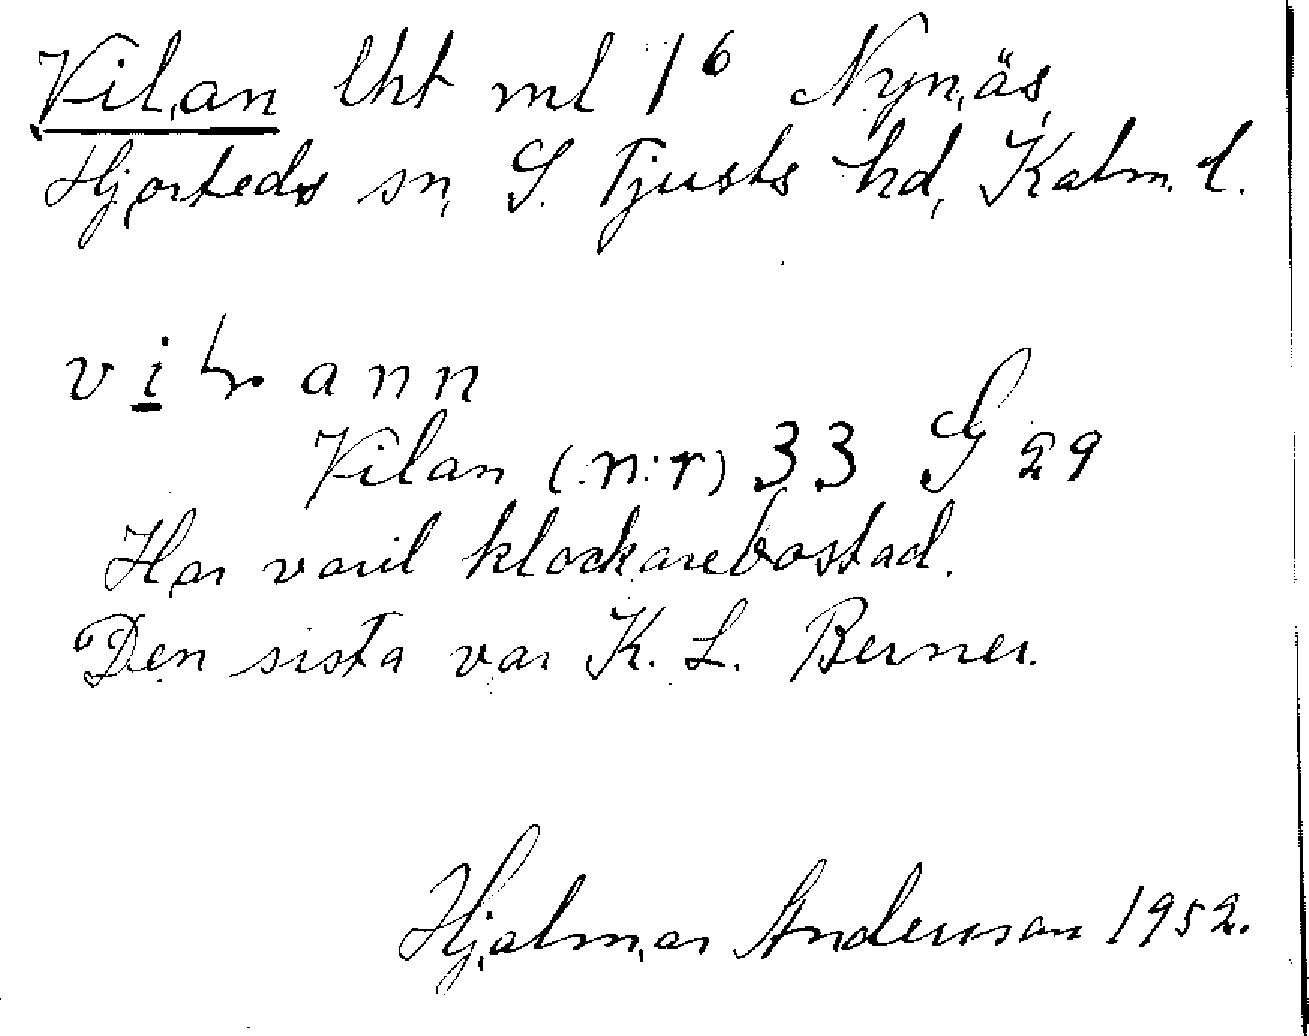 Vilan lht ml 1⁶ Nynäs,
Hjorteds sn, S. Tjusts hd, Kalm. l.
ann
Vilan (n:r) 33 G 29
Har varit klockarebostad.
Den sista var K. L. Berner.
Hjalmar Andersson 1952.